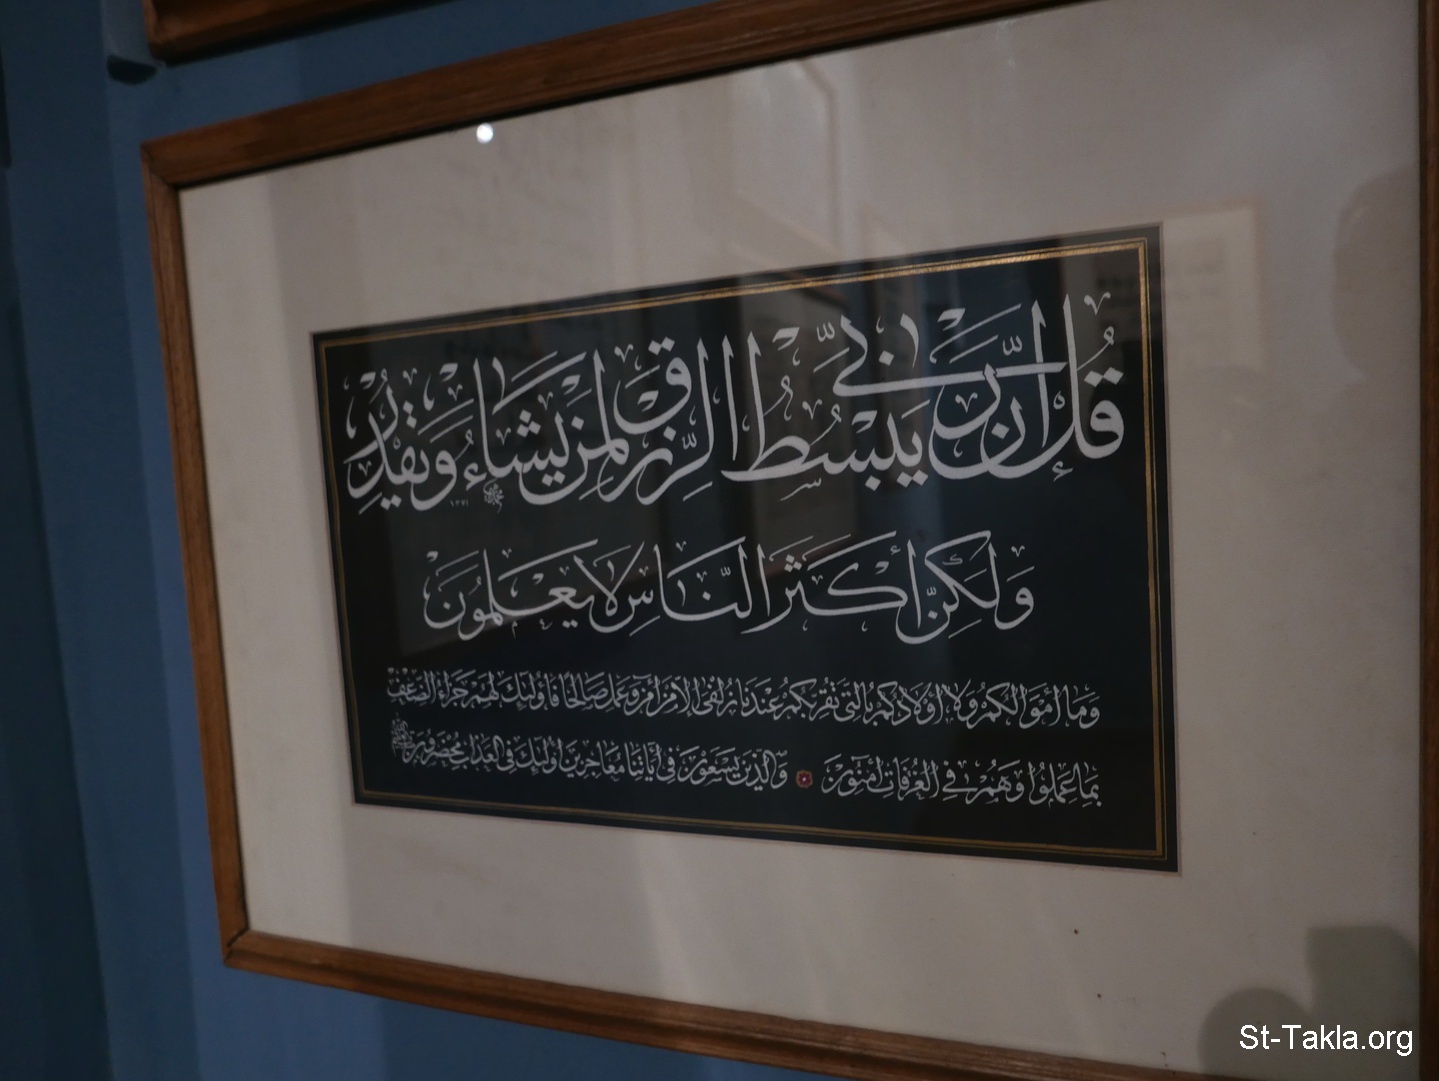 قُلْ إِنَّ رَبِّي يَبْسُطُ الرِّزْقَ لِمَنْ يَشَاءُ وَيَقْدِرُ
١٣٧١
وَلَكِنَّ أَكْثَرَ النَّاسِ لَا يَعْلَمُونَ
وَمَا أَمْوَالُكُمْ وَلَا أَوْلَادُكُمْ بِالَّتِي تُقَرِّبُكُمْ عِنْدَنَا زُلْفَى إِلَّا مَنْ آمَنَ وَعَمِلَ صَالِحًا فَأُولَئِكَ لَهُمْ جَزَاءُ الضِّعْفِ
بِمَا عَمِلُوا وَهُمْ فِي الْغُرُفَاتِ آمِنُونَ وَالَّذِينَ يَسْعَوْنَ فِي آيَاتِنَا مُعَاجِزِينَ أُولَئِكَ فِي الْعَذَابِ مُحْضَرُونَ
St-Takla.org